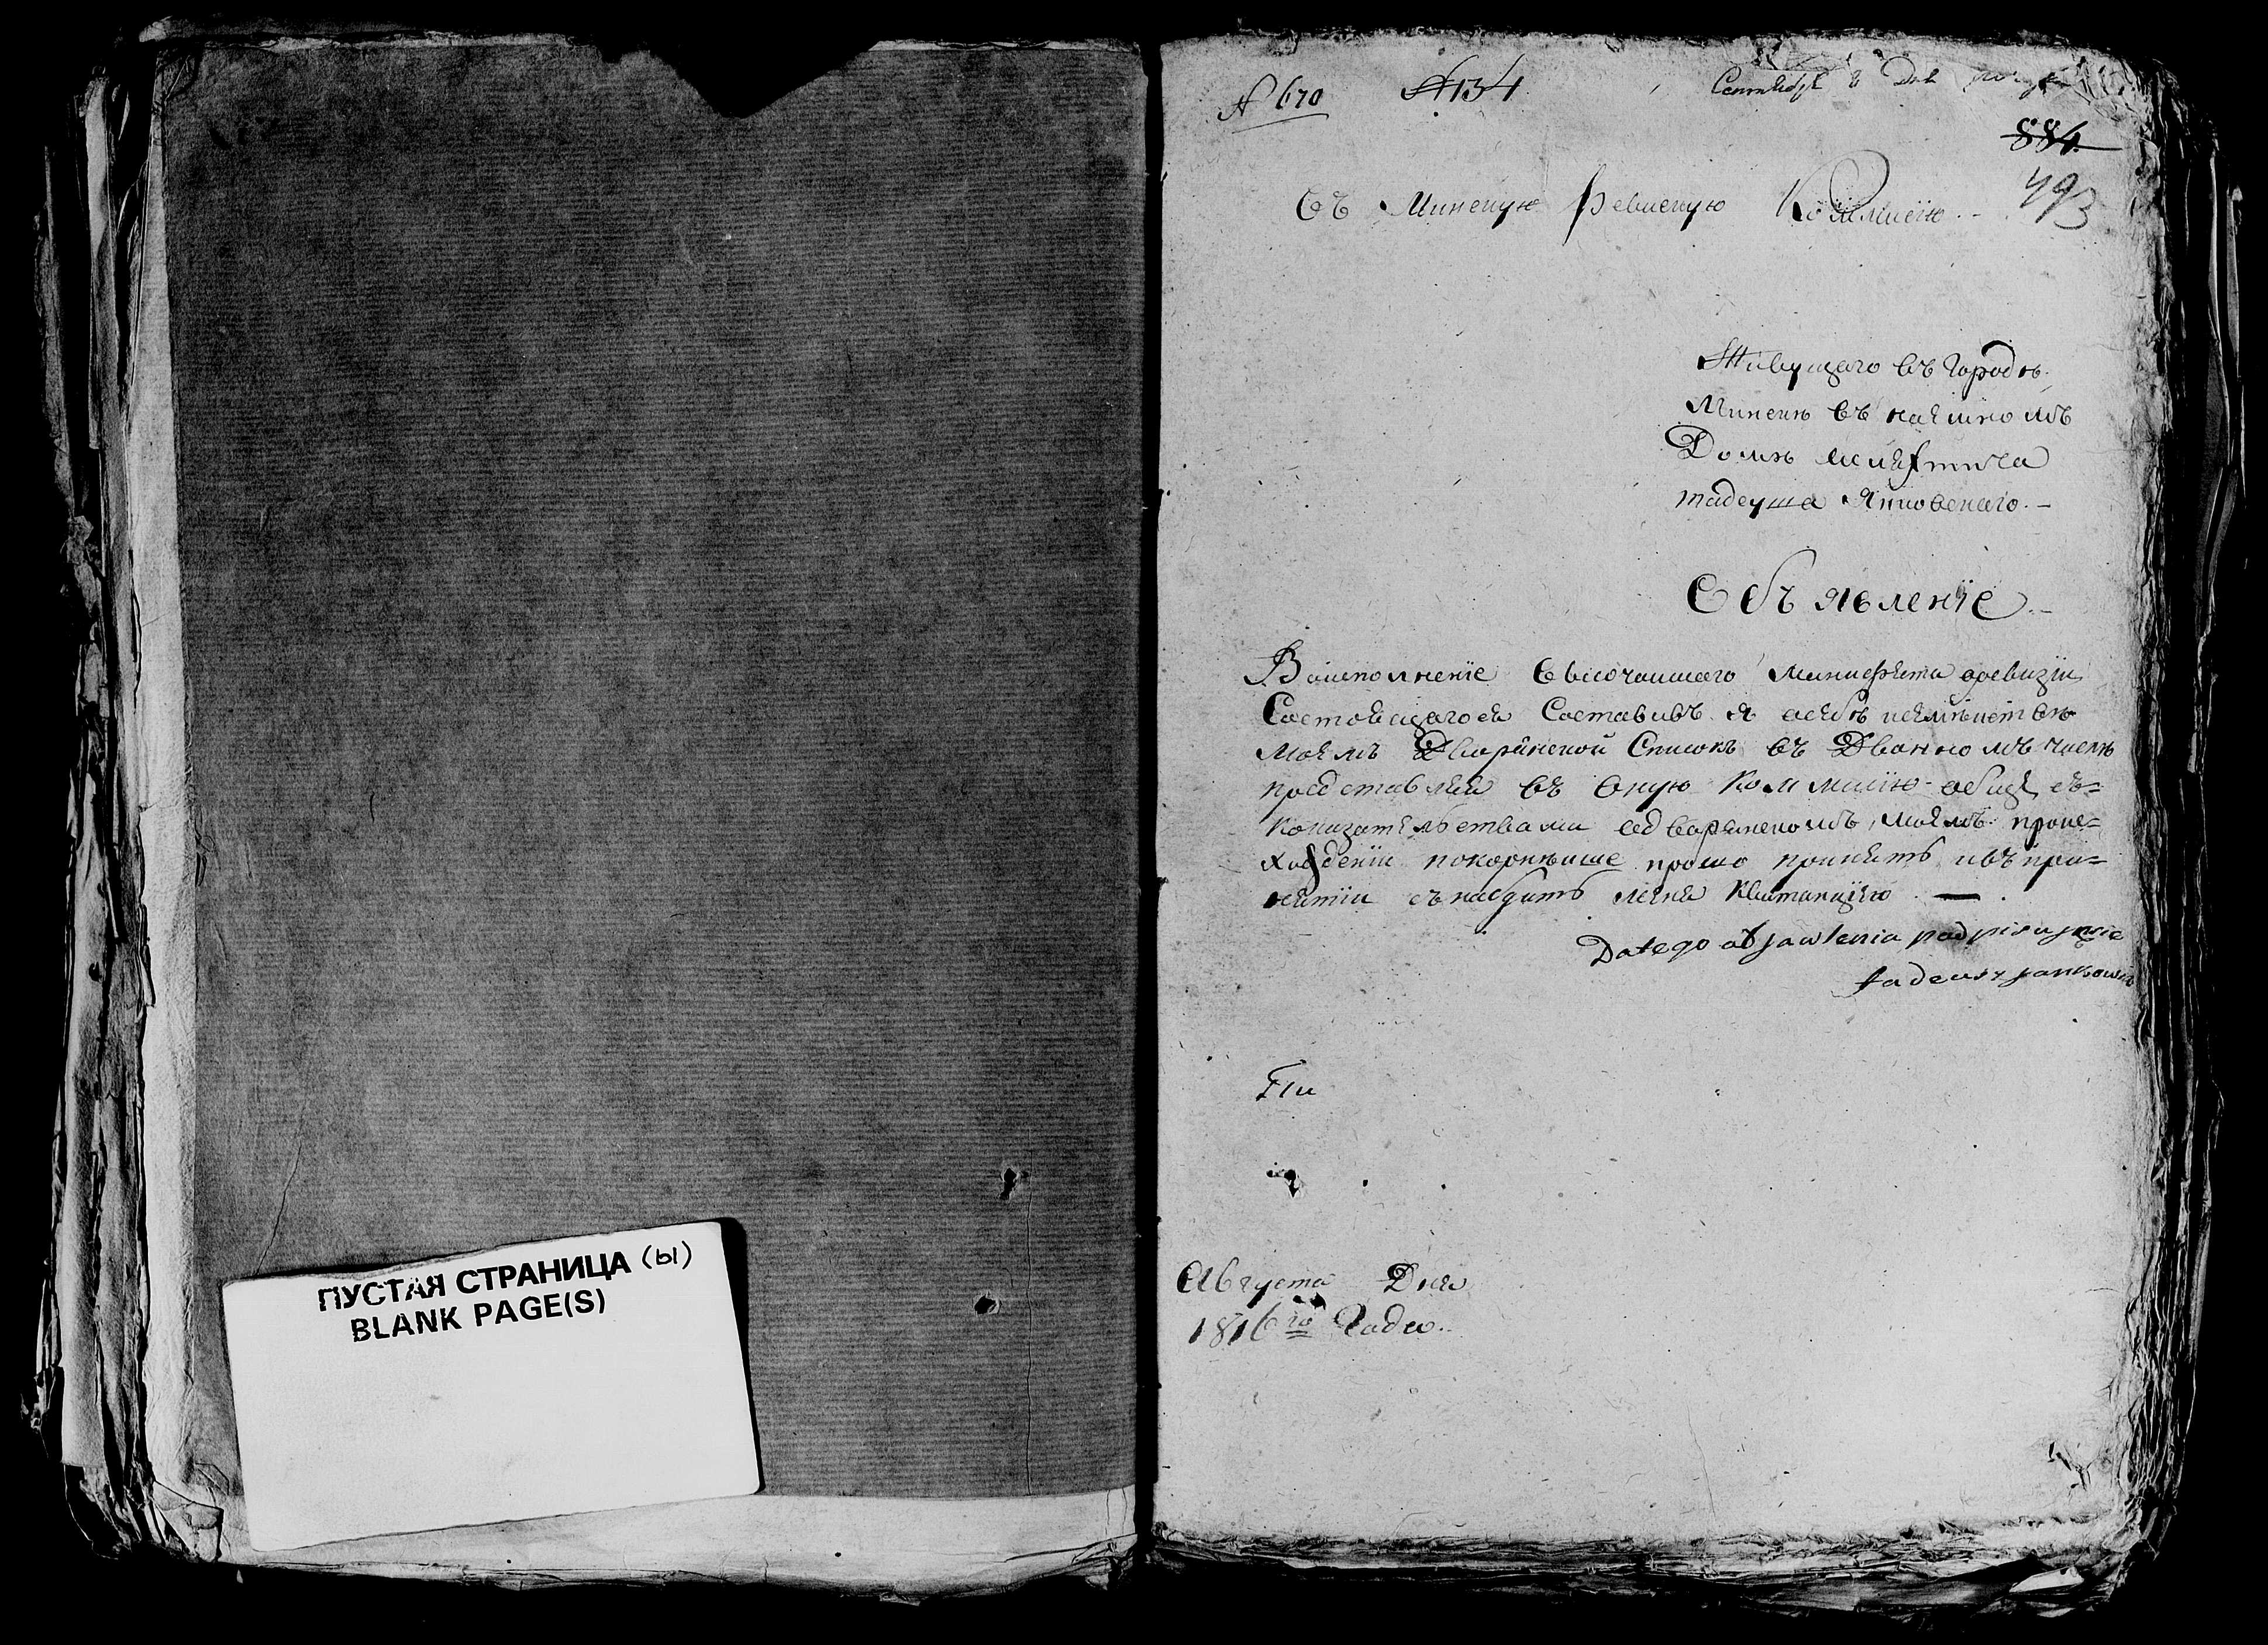 ПУСТАЯ СТРАНИЦА (ы)
BLANK PAGE(S)
№ 670 № 134 Сентября 8 Дня
884
493
Въ Минскую Ревизскую Коммисїю
Живущаго въ городѣ
Минскѣ въ наемномъ
Домѣ шляхтича
тадеуша Янковскаго.
Объявленїе
Воисполненїе Высочаишаго Манифеста оревизїи
Состоящагося Составивъ я осебѣ исемѣиствѣ
Моемъ Дворянской Списокъ въ Двоиномъ числѣ
представляя въ Оную Коммисїю обще съ=
Доказательствами одворянскомъ моемъ проис=
хождении покорнѣише прошу принять ивъ при=
нятїи снабдить меня Квитанцїею —
Do tego objawlenia podpisujęsie
Tadeusz Jankowski
Августа Дня
1816го Года.